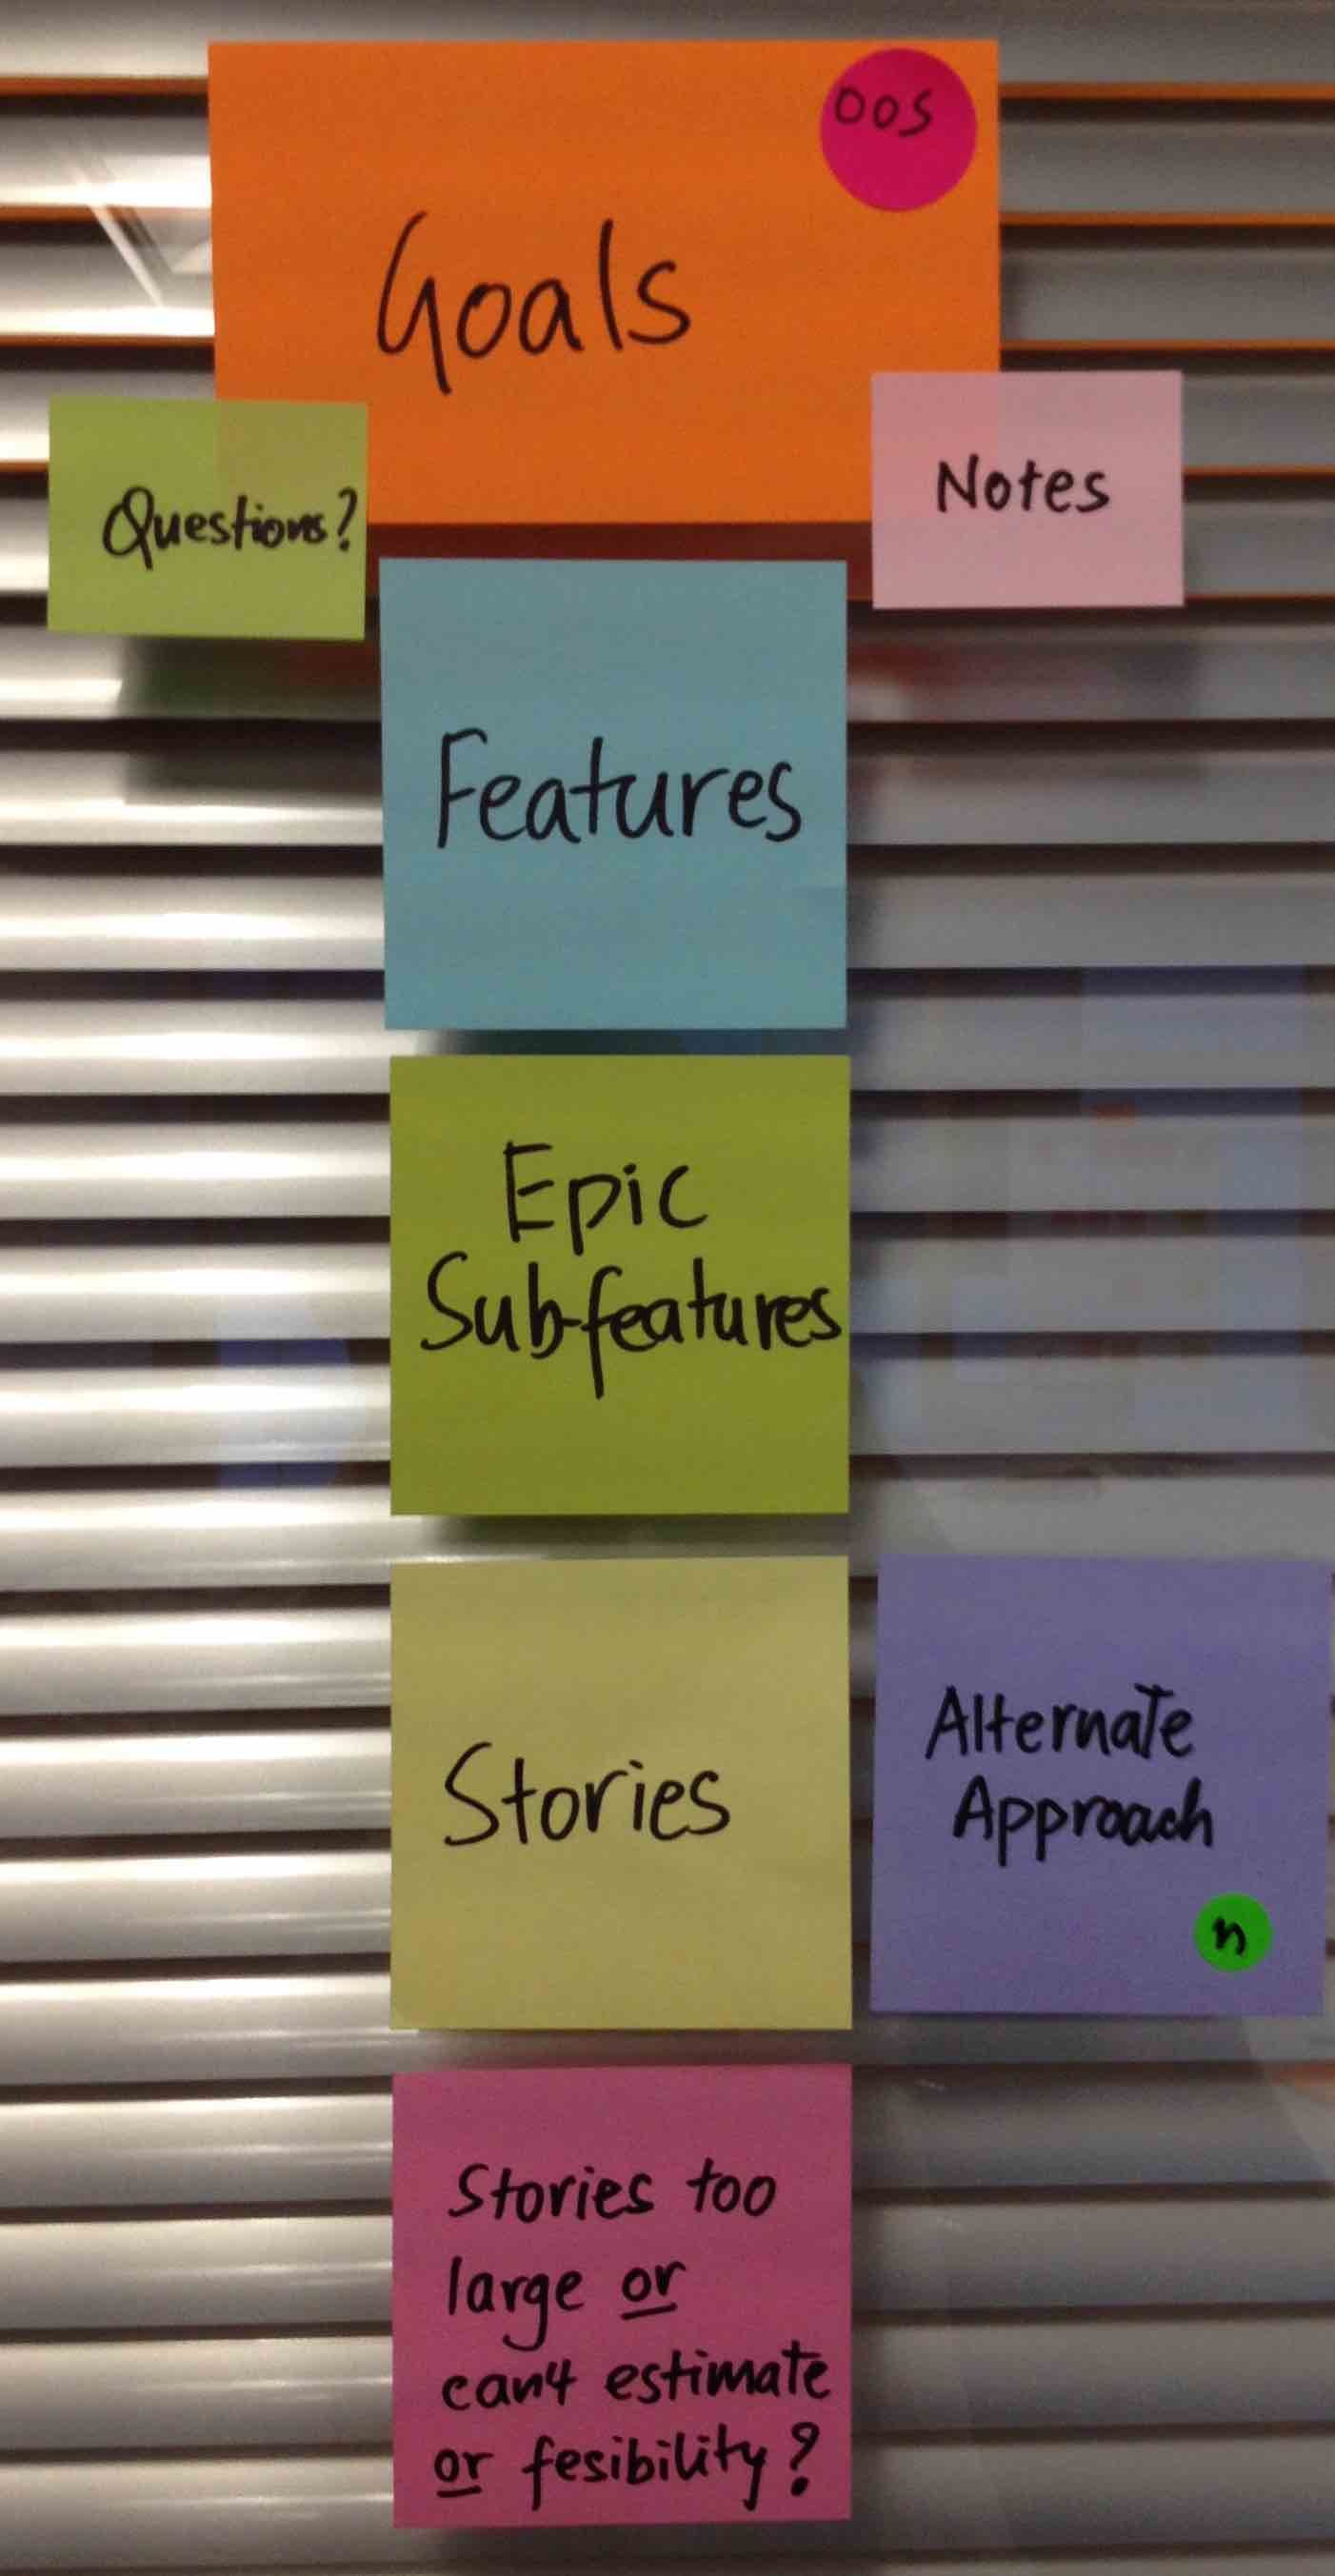 OOS
Goals
Questions?
Notes
Features
Epic
Sub-features
Stories
Alternate
Approach
n
Stories too
large or
can't estimate
or fesibility?